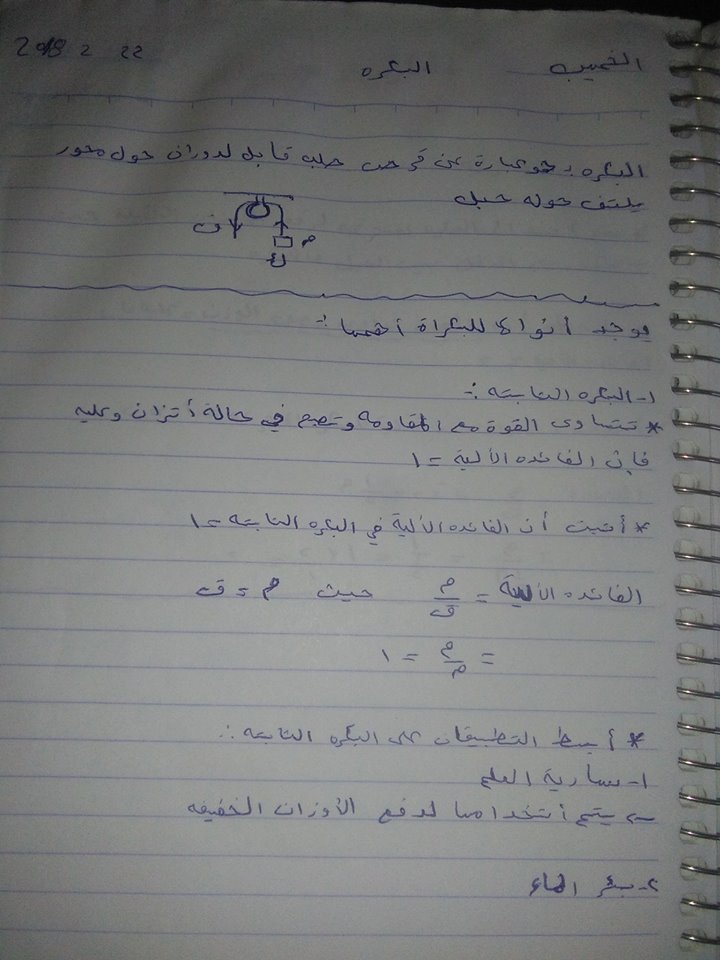 الخميس البكره 22 2 2018
البكره : هو عبارة عن قرص صلب قابل لدوران حول محور
يلتف حوله حبل
ق م
ع
يوجد أنواع للبكراة أهمها :-
1- البكره الثابته :-
* تتساوى القوة مع المقاومه وتصبح في حالة أتزان وعليه
فإن الفائده الألية = ١
* أثبت أن الفائده الألية في البكره الثابته = ١
الفائده الألية = م/ق حيث م = ق
= م/م = ١
* أبسط التطبيقات على البكره الثابته :-
١- سارية العلم
يتم أستخدامها لدفع الأوزان الخفيفه
٢- بئر الماء